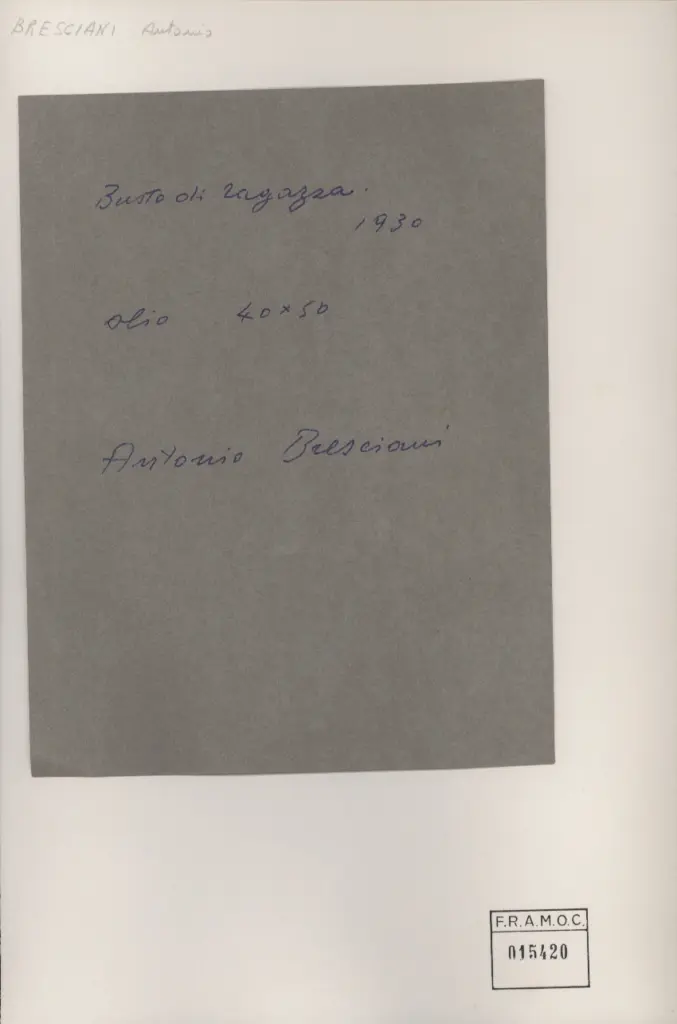 BRESCIANI Antonio
Busto di ragazza.
1930
olio 40x50
Antonio Bresciani
F.R.A.M.O.C.
015420